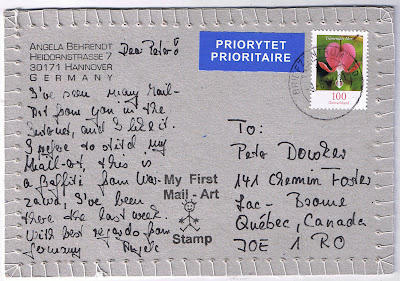 ANGELA BEHRENDT
HEIDORNSTRASSE 7
30171 HANNOVER
GERMANY
Dear Peter
I've seen many Mail-
Art from you in the
Internet, and I like it.
I to my
Mail-Art, this is
a Graffiti from War-
zawa, I've been
there the last week.
With best regards from
Germany Angela
PRIORYTET
PRIORITAIRE
100
Deutschland
My First
Mail-Art
Stamp
To:
Peter Dowker
141 Chemin Foster
Lac-Brome
Québec, Canada
JOE 1 RO